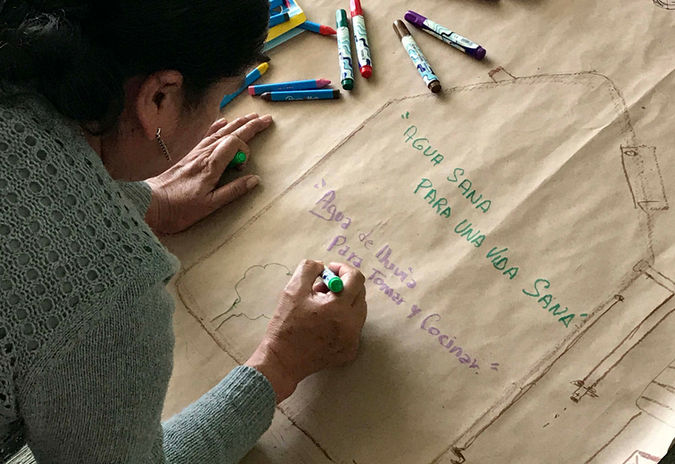 "AGUA SANA
PARA UNA VIDA SANA"
"Agua de lluvia
Para Tomar y Cocinar."